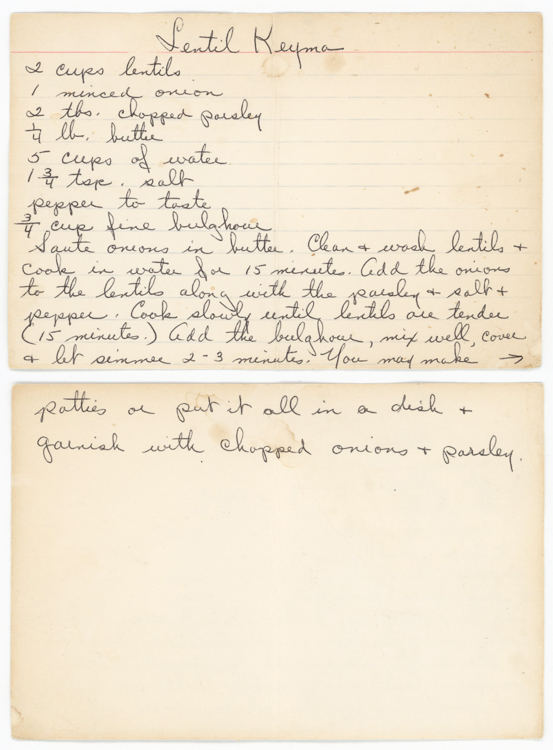 Lentil Keyma
2 cups lentils
1 minced onion
2 tbs. chopped parsley
1/4 lb. butter
5 cups of water
1 3/4 tsp. salt
pepper to taste
3/4 cup fine bulghour
Saute onions in butter. Clean & wash lentils &
cook in water for 15 minutes. Add the onions
to the lentils along with the parsley & salt &
pepper. Cook slowly until lentils are tender
(15 minutes.) Add the bulghour, mix well, cover
& let simmer 2-3 minutes. You may make →
patties or put it all in a dish &
garnish with chopped onions & parsley.